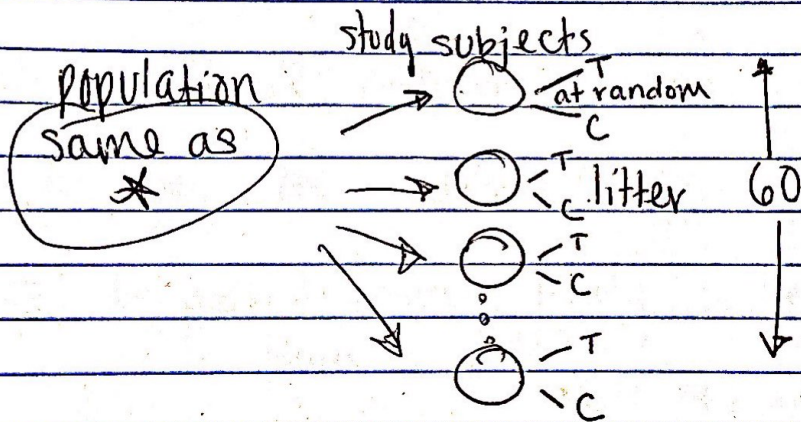 study subjects
population
same as
*
T
at random
C
T
C litter
60
T
C
T
C